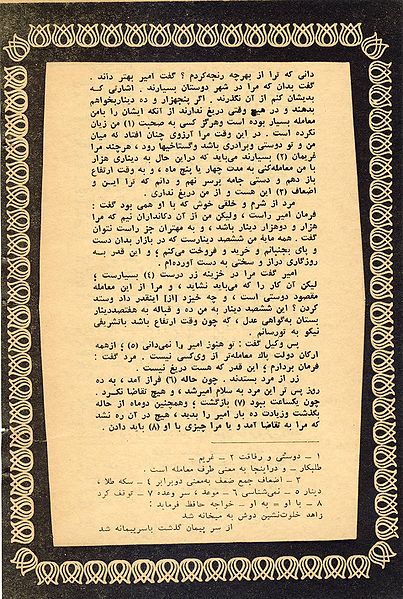 دانی که ترا از بهرچه رنجه‌کردم؟ گفت امیر بهتر داند .
گفت بدان که مرا در شهر دوستان بسیارند . اشارتی کــه
بدیشان کنم از آن نگذرند . اگر پنجهزار و ده دیناربخواهم
بدهند و در هیچ وقتی دریغ ندارند از آنکه ایشان را بامن
معامله بسیار بوده است وهرگز کسی به صحبت (۱) من زیان
نکرده است . در این وقت مرا آرزوی چنان افتاد که میان
من و تو دوستی وبرادری باشد وگستاخیها رود ، هرچند مرا
غریمان (۲) بسیارند می‌باید که دراین حال به دیناری هزار
با من معامله‌کنی به مدت چهار یا پنج ماه ، و به وقت ارتفاع
باز دهم و دستی جامه برسر نهم و دانم که ترا ایــن و
اضعاف (۳) این هست و از من دریغ نداری .
مرد از شرم و خلقی خوش که با او همی بود گفت :
فرمان امیر راست ، ولیکن من از آن دکانداران نیم که مرا
هزار و دوهزار دینار باشد ، و به مهتران جز راست نتوان
گفت . همه مایهٔ من ششصد دینارست که در بازار بدان دست
و پای بجنبانم و خرید و فروخت می‌کنم ؛ و این قدر بــه
روزگاری دراز و سختی به دست آورده‌ام .
امیر گفت مرا در خزینه زر درست (۴) بسیارست ؛
لیکن آن کار را که می‌باید نشاید ، و مرا از این معامله
مقصود دوستی است ، و چه خیزد [از] اینقدر داد وستد
کردن ؟ این ششصد دینار به من ده و قباله به هفتصددینار
بستان به‌گواهی عدل ، که چون وقت ارتفاع باشد باتشریفی
نیکو به تورسانم .
پس وکیل گفت : تو هنوز امیر را نمی‌دانی (۵) ؛ ازهمه
ارکان دولت پاک معامله‌تر از وی‌کسی نیست . مرد گفت :
فرمان بردارم ؛ این قدر که هست دریغ نیست .
زر از مرد بستدند . چون حاله (۶) فراز آمد ، به ده
روز پس تر این مرد به سلام امیرشد ، و هیچ تقاضا نکـرد .
چون یکساعت ببود (۷) بازگشت ؛ وهمچنین دوماه از حاله
بگذشت وزیادت ده بار امیر را بدید ، هیچ در آن ره نشد
که مرا به تقاضا آمد و یا مرا چیزی با او (۸) باید دادن .
۱ — دوستی و رفاقت ۲ — غریم —
طلبکار ـ و دراینجا به معنی طرف معامله است .
۳ — اضعاف جمع ضعف به‌معنی دوبرابر ۴ — سکه طلا ،
دینار ۵ — نمی‌شناسی ۶ — موعد ، سر وعده ۷ — توقف کرد
۸ — با او = به او — خواجه حافظ فرماید :
زاهد خلوت‌نشین دوش به میخانه شد
از سر پیمان گذشت باسرپیمانه شد